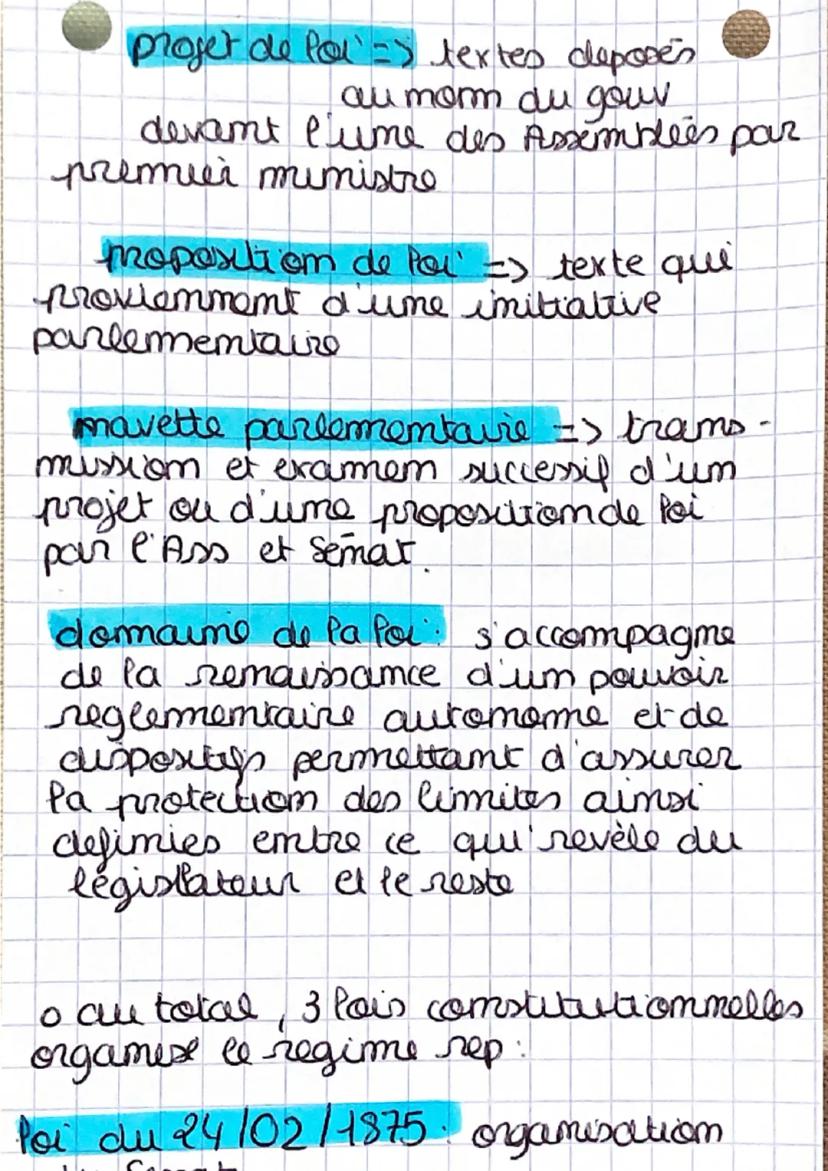 projet de loi => textes deposés
au nom du gouv
devant l'une des Assemblées par
premier ministre
proposition de loi => texte qui
proviennent d'une initiative
parlementaire
navette parlementaire => trans-
mission et examen successif d'un
projet ou d'une proposition de loi
par l'Ass et Sénat.
domaine de la loi : s'accompagne
de la renaissance d'un pouvoir
reglementaire autonome et de
dispositifs permettant d'assurer
la protection des limites ainsi
definies entre ce qui revèle du
législateur et le reste
o au total, 3 lois constitutionnelles
organise le regime rep :
loi du 24/02/1875 : organisation
du Senat